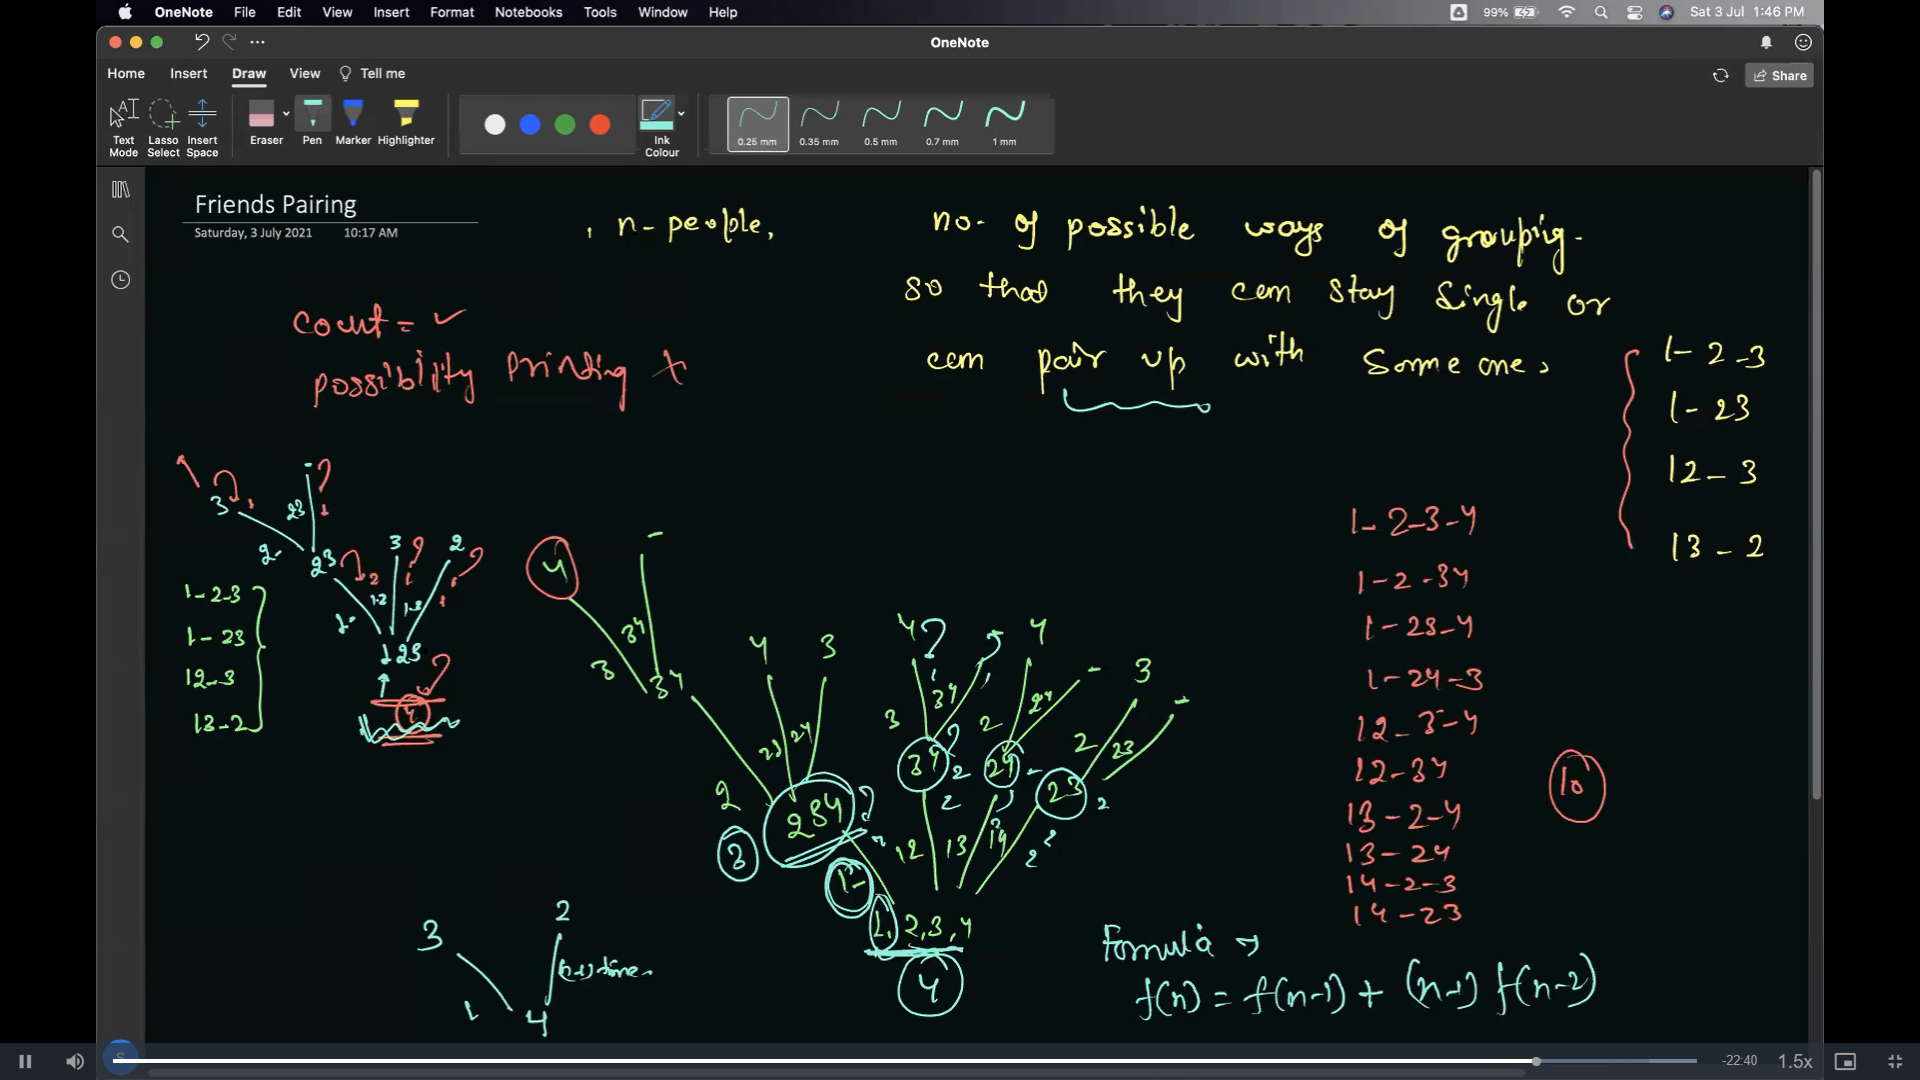 OneNote File Edit View Insert Format Notebooks Tools Window Help 99% Sat 3 Jul 1:46 PM
OneNote
Home Insert Draw View Tell me Share
Text Mode Lasso Select Insert Space Eraser Pen Marker Highlighter Ink Colour 0.25 mm 0.35 mm 0.5 mm 0.7 mm 1 mm
Friends Pairing
Saturday, 3 July 2021 10:17 AM
n- people,
no. of possible ways of grouping.
so that they can stay single or
can pair up with someone.
count = ✓
possibility printing ×
1-2-3
1-23
12-3
13-2
3 23 3 2
2- 23
1- 1-2 1-3
123
4
1-2-3
1-23
12-3
13-2
4 -
3 34
34
4 3
23 24
2
234
3
1-
4 - 4 - 3 -
3 34 2 24 2 23
34 24 23
12 13 14
1, 2, 3, 4
4
1-2-3-4
1-2-34
1-23-4
1-24-3
12-3-4
12-34
13-2-4
13-24
14-2-3
14-23
10
3 2
1 (n-1) time
4
Formula →
f(n) = f(n-1) + (n-1) f(n-2)
-22:40 1.5x